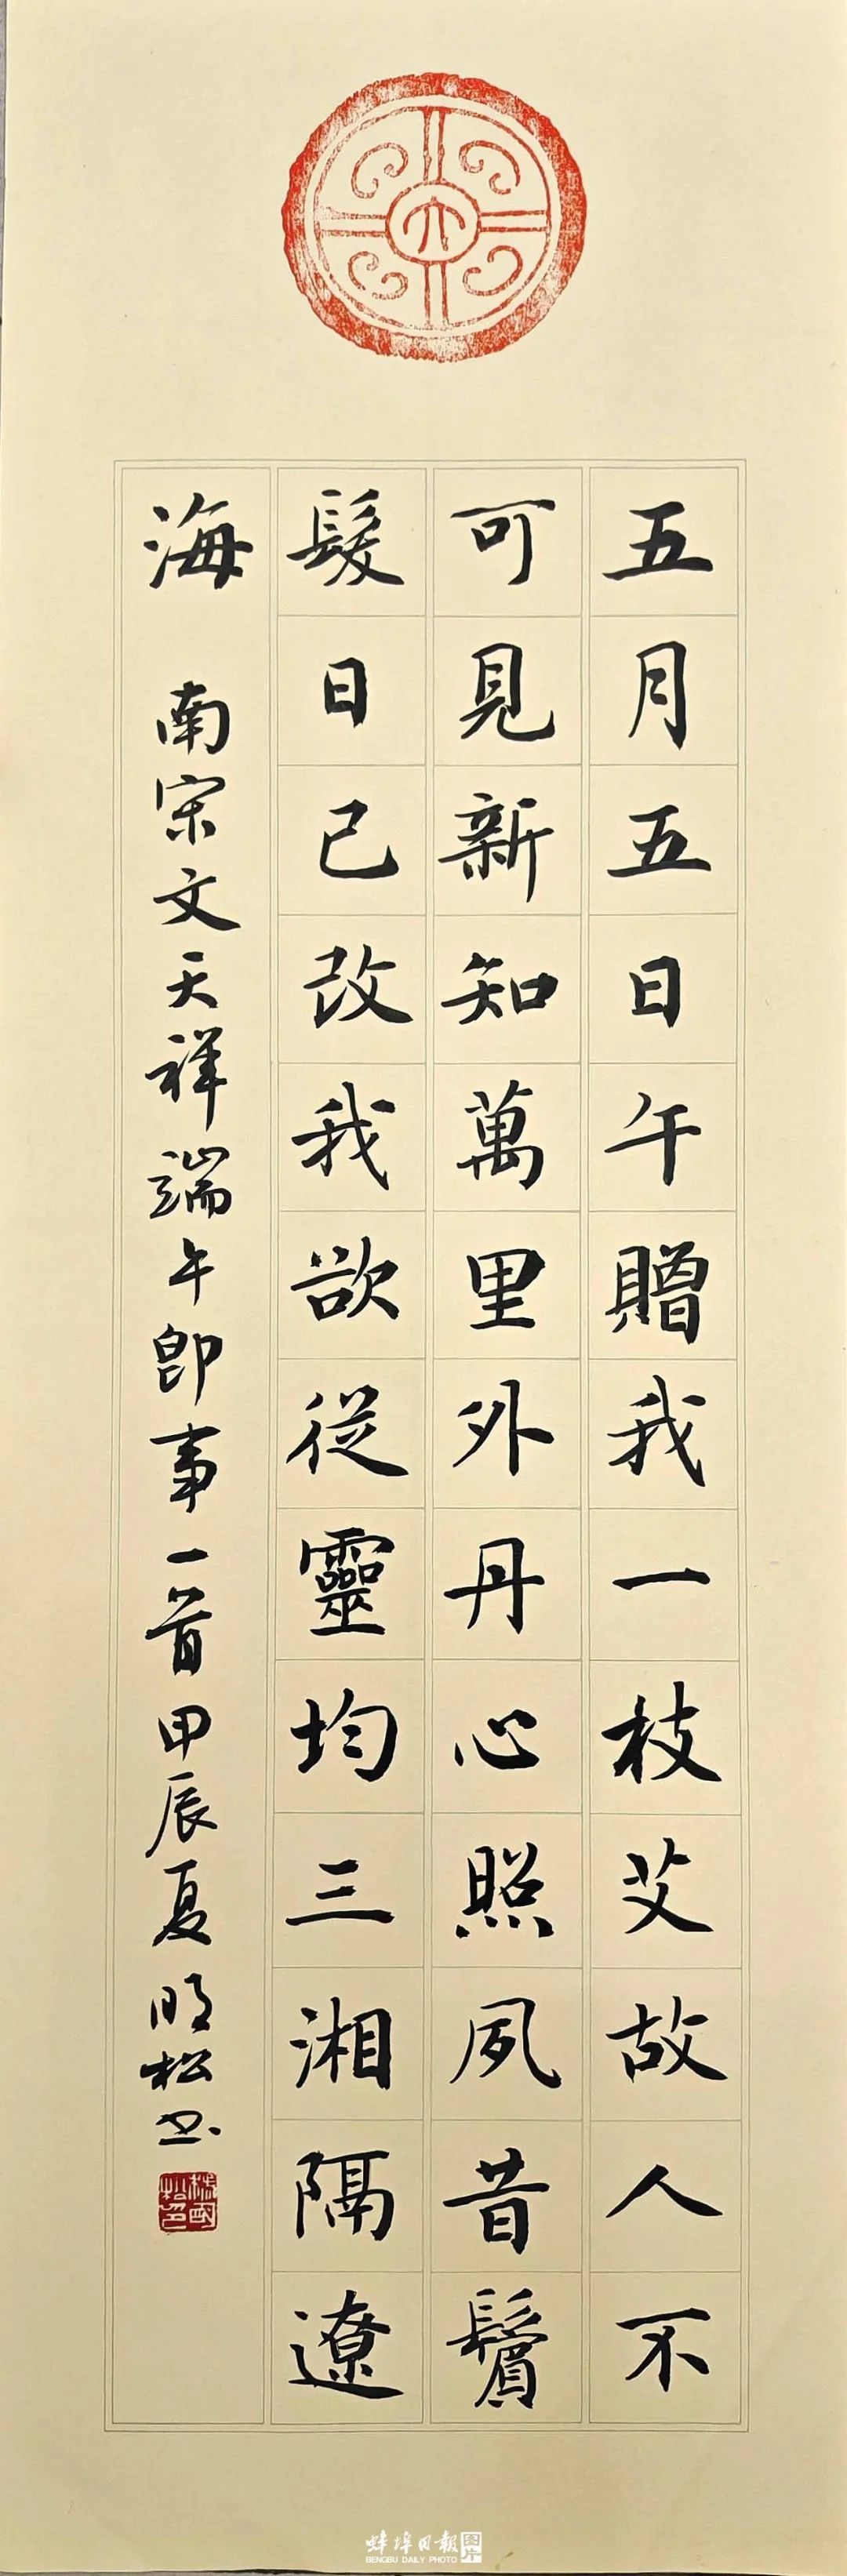 五月五日午贈我一枝艾故人不
可見新知萬里外丹心照夙昔鬢
髮日已改我欲從靈均三湘隔遼
海 南宋文天祥端午即事一首甲辰夏明松书
蚌埠日报图片
BENGBU DAILY PHOTO